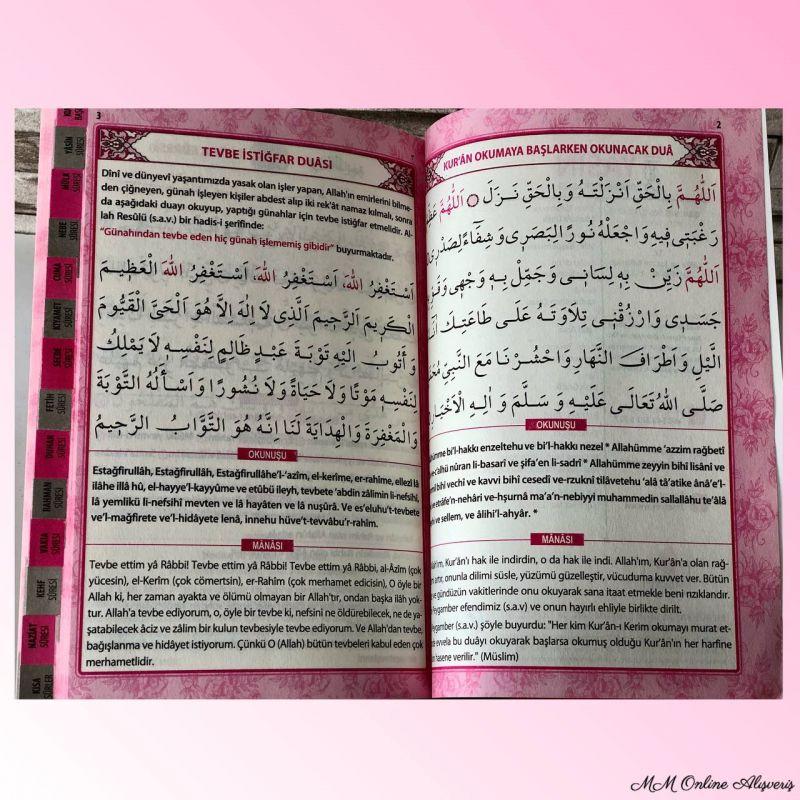 3
TEVBE İSTİĞFAR DUÂSI
Dînî ve dünyevî yaşantımızda yasak olan işler yapan, Allah'ın emirlerini bilme-
den çiğneyen, günah işleyen kişiler abdest alıp iki rek'ât namaz kılmalı, sonra
da aşağıdaki duayı okuyup, yaptığı günahlar için tevbe istiğfar etmelidir. Al-
lah Resûlü (s.a.v.) bir hadis-i şerifinde:
"Günahından tevbe eden hiç günah işlememiş gibidir" buyurmaktadır.
اَسْتَغْفِرُ اللّٰهَ، اَسْتَغْفِرُ اللّٰهَ، اَسْتَغْفِرُ اللّٰهَ الْعَظٖيمَ
الْكَرٖيمَ الرَّحٖيمَ الَّذٖى لَا اِلٰهَ اِلَّا هُوَ الْحَىَّ الْقَيُّومَ
وَ اَتُوبُ اِلَيْهِ تَوْبَةَ عَبْدٍ ظَالِمٍ لِنَفْسِهٖ لَا يَمْلِكُ
لِنَفْسِهٖ مَوْتًا وَلَا حَيَاةً وَلَا نُشُورًا وَ اَسْأَلُهُ التَّوْبَةَ
وَالْمَغْفِرَةَ وَالْهِدَايَةَ لَنَا اِنَّهُ هُوَ التَّوَّابُ الرَّحٖيمُ
OKUNUŞU
Estağfirullâh, Estağfirullâh, Estağfirullâhe'l-'azîm, el-kerîme, er-rahîme, ellezî lâ
ilâhe illâ hû, el-hayye'l-kayyûme ve etûbü ileyh, tevbete 'abdin zâlimin li-nefsihî,
lâ yemlikü li-nefsihî mevten ve lâ hayâten ve lâ nuşûrâ. Ve es'eluhu't-tevbete
ve'l-mağfirete ve'l-hidâyete lenâ, innehu hüve't-tevvâbu'r-rahîm.
MÂNÂSI
Tevbe ettim yâ Râbbi! Tevbe ettim yâ Râbbi! Tevbe ettim yâ Râbbi, al-Âzîm (çok
yücesin), el-Kerîm (çok cömertsin), er-Rahîm (çok merhamet edicisin), O öyle bir
Allah ki, her zaman ayakta ve ölümü olmayan bir Allah'tır, ondan başka ilâh yok-
tur. Allah'a tevbe ediyorum, o, öyle bir tevbe ki, nefsini ne öldürebilecek, ne de ya-
şatabilecek âciz ve zâlim bir kulun tevbesiyle tevbe ediyorum. Ve Allah'dan tevbe,
bağışlanma ve hidâyet istiyorum. Çünkü O (Allah) bütün tevbeleri kabul eden çok
merhametlidir.
2
KUR'ÂN OKUMAYA BAŞLARKEN OKUNACAK DUÂ
اَللّٰهُمَّ بِالْحَقِّ اَنْزَلْتَهُ وَ بِالْحَقِّ نَزَلَ اَللّٰهُمَّ
رَغْبَتٖى فٖيهِ وَاجْعَلْهُ نُورًا لِبَصَرٖى وَ شِفَاءً لِصَدْرٖى
اَللّٰهُمَّ زَيِّنْ بِهٖ لِسَانٖى وَ جَمِّلْ بِهٖ وَجْهٖى وَ
جَسَدٖى وَ ارْزُقْنٖى تِلَاوَتَهُ عَلٰى طَاعَتِكَ
الَّيْلِ وَ اَطْرَافَ النَّهَارِ وَ احْشُرْنَا مَعَ النَّبِىِّ
صَلَّى اللّٰهُ تَعَالٰى عَلَيْهِ وَ سَلَّمَ وَ اٰلِهِ الْاَخْيَارِ
OKUNUŞU
bi'l-hakkı enzeltehu ve bi'l-hakkı nezel * Allahümme 'azzim rağbetî
nûran li-basarî ve şifa'en li-sadrî * Allahümme zeyyin bihî lisânî ve
bihî vechî ve kavvi bihî cesedî ve-rzuknî tilâvetehu 'alâ tâ'atike
ve-hşurnâ ma'an-nebiyyi muhammedin sallallahu te'âlâ
ve sellem, ve âlihi'l-ahyâr. *
MÂNÂSI
Kur'ân'ı hak ile indirdin, o da hak ile indi. Allah'ım, Kur'ân'a olan rağ-
onunla dilimi süsle, yüzümü güzelleştir, vücuduma kuvvet ver. Bütün
gündüzün vakitlerinde onu okuyarak sana itaat etmekle beni rızıklandır.
efendimiz (s.a.v) ve onun hayırlı ehliyle birlikte dirilt.
(s.a.v.) şöyle buyurdu: "Her kim Kur'ân-ı Kerim okumayı murat et-
evvela bu duâyı okuyarak başlarsa okumuş olduğu Kur'ân'ın her harfine
hasene verilir." (Müslim)
YÂSİN SÛRESİ
MÜLK SÛRESİ
NEBE SÛRESİ
CUMA SÛRESİ
KIYAMET SÛRESİ
SECDE SÛRESİ
FETİH SÛRESİ
DUHAN SÛRESİ
RAHMAN SÛRESİ
VAKIA SÛRESİ
KEHF SÛRESİ
NAZİAT SÛRESİ
KISA SÛRELER
MM Online Alışveriş